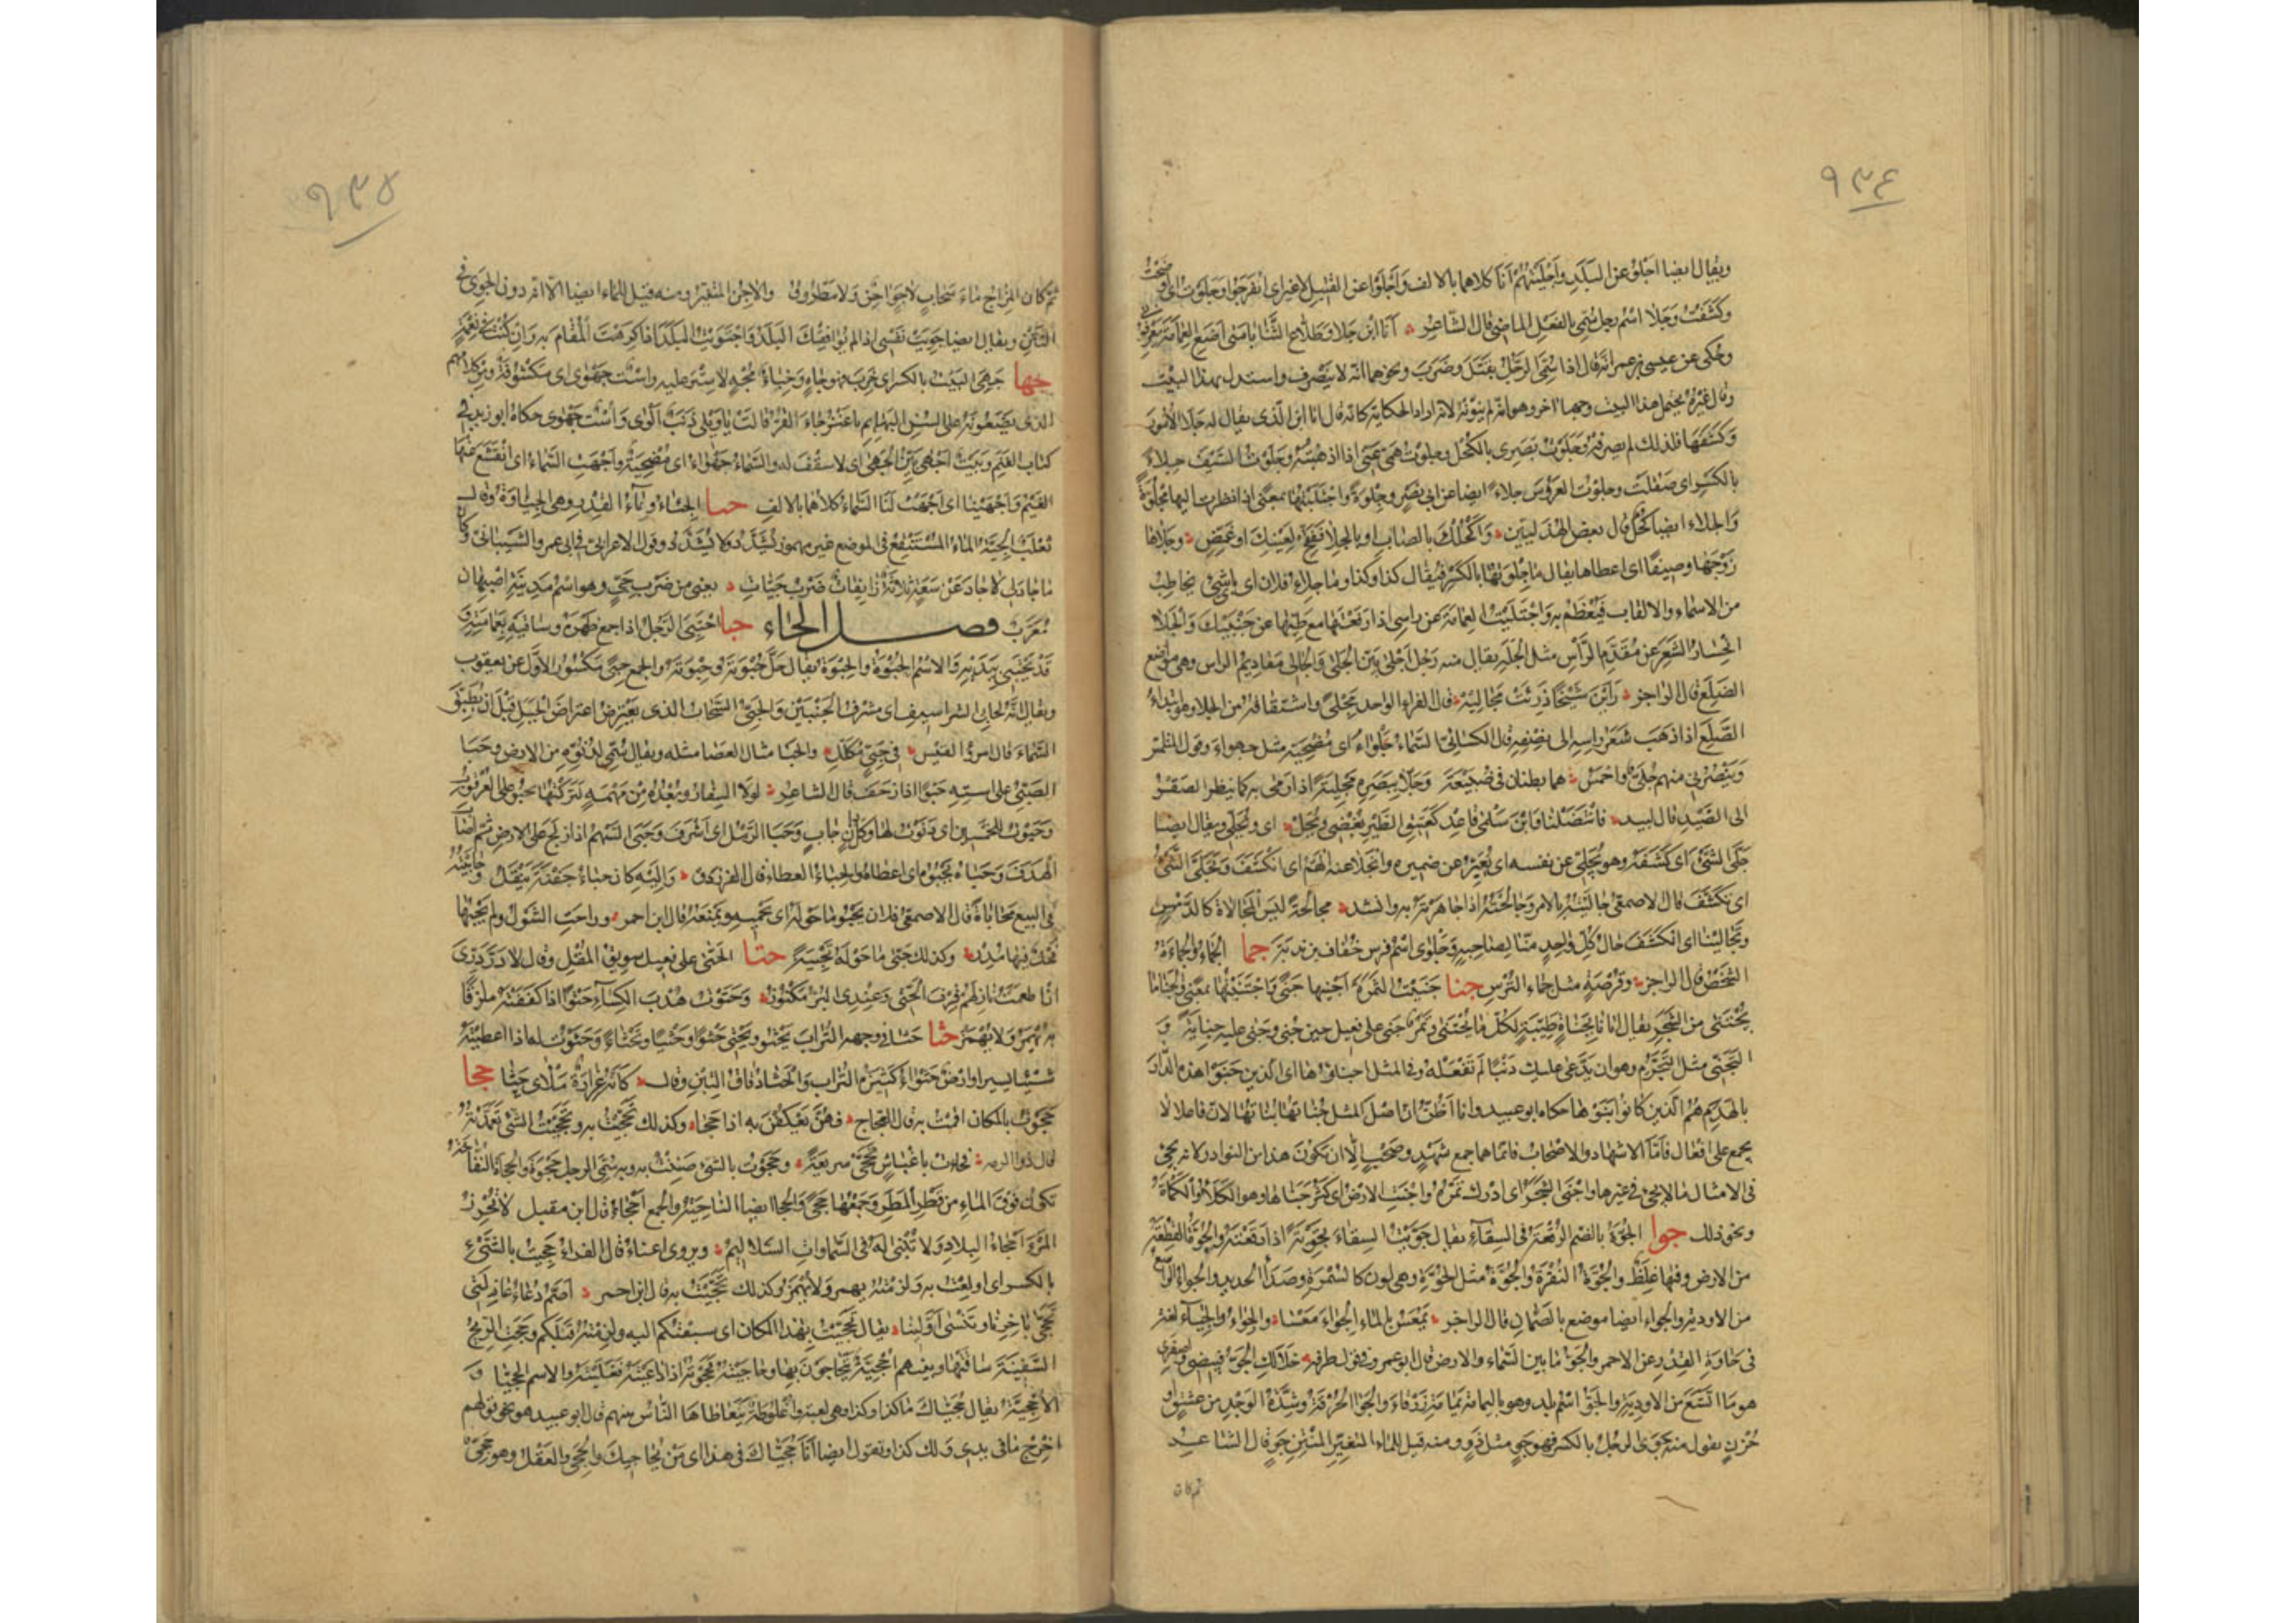 ٩٣٤
ويقال ايضا اجلوا عن البلد واجليتهم انا كلاهما بالالف واجلوا عن القتيل لا غير اى انفرجوا وجلوت اى اوضحت
وكشفت وجلا اسم رجل سمى بالفعل الماضى قال الشاعر انا ابن جلا وطلاع الثنايا متى اضع العمامة تعرفونى
وحكى عن عيسى بن عمر انه قال اذا سمى الرجل بقتل وضرب ونحوهما انه لا يصرف واستدل بهذا البيت
وقال غيره يحتمل هذا البيت وجها اخر وهو انه لم ينونه لانه اراد الحكاية كانه قال انا ابن الذى يقال له جلا الامور
وكشفها فلذلك لم يصرفه وجلوت بصرى بالكحل وجلوت همى عنى اذا اذهبته وجلوت السيف جلاء
بالكسر اى صقلت وجلوت العروس جلاء ايضا عن ابى نصر وجلوة واجتليتها بمعنى اذا نظرت اليها مجلوة
والجلاء ايضا كحل قال بعض الهذليين واكحلك بالصاب او بالجلا ففتح لعينك او غمض وجلاها
زوجها وصيفا اى اعطاها يقال ما جلوتها بالكسر فيقال كذا وكذا وما جلاء فلان اى باى شئ يخاطب
من الاسماء والالقاب فيعظم به واجتليت العمامة عن راسى اذا رفعتها مع طيها عن جبينك والجلا
انحسار الشعر عن مقدم الرأس مثل الجله يقال منه رجل اجلى بين الجلى والمجالى مقاديم الراس وهى مواضع
الصلع قال الراجز راين شيخا ذرئت مجاليه قال الفراء الواحد مجلى واشتقاقه من الجلا وهو ابتداء
الصلع اذا ذهب شعر راسه الى نصفه قال الكسائى السماء جلواء اى مضحية مثل جهواء وقول المتلمس
وينصرنى منهم جلى واحمس هما بطنان فى ضبيعة وجلا ببصره تجلية اذا رمى به كما ينظر الصقر
الى الصيد قال لبيد فانتضلنا وابن سلمى قاعد كعتيق الطير يغضى ويجل اى ويجلى ويقال ايضا
جلى الشئ اى كشفه وهو يجلى عن نفسه اى يعبر عن ضميره وانجلا عنه الهم اى انكشف وتجلى الشئ
اى تكشف قال الاصمعى جاليته بالامر وجالحته اذا جاهرته به وانشد مجالحة ليس المجالاة كالدمس
وتجالينا اى انكشف حال كل واحد منا لصاحبه وجلوى اسم فرس خفاف بن ندبة جما الجماء والجماءة
الشخص قال الراجز وقرصة مثل جماء الترس جنا جنيت الثمرة اجنيها جنى واجتنيتها بمعنى والجنا ما
يجتنى من الشجر يقال اتانا بجناة طيبة لكل ما يجتنى وثمر جنى على فعيل حين جنى وجنى عليه جناية و
التجنى مثل التجرم وهو ان يدعى عليك ذنبا لم تفعله وفى المثل اجناؤها ابناؤها اى الذين جنوا هذه الدار
بالهدم هم الذين كانوا بنوها حكاه ابو عبيد وانا اظن ان اصل المثل جناتها بناتها لان فاعلا لا
يجمع على افعال فاما الاشهاد والاصحاب فانما هما جمع شهد وصحب الا ان تكون هذا من النوادر لانه يجئ
فى الامثال ما لا يجئ فى غيرها واجنى الشجر اى ادرك ثمره واجنت الارض اى كثر جناها وهو الكلأ والكمأة
ونحو ذلك جوا الجوة بالضم الرقعة فى السقاء يقال جويت السقاء تجوية اذا رقعته والجوة القطعة
من الارض وفيها غلظ والجوة النقرة والجوة مثل الحوة وهى لون كالسمرة وصدأ الحديد والجواء الواسع
من الاودية والجواء ايضا موضع بالصمان قال الراجز يمعس بالماء الجواء معسا والجواء والجياء لغة
فى جاوة القدر عن الاحمر والجو ما بين السماء والارض قال ابو عمرو فى قول طرفة خلا لك الجو فبيضى واصفرى
هو ما اتسع من الاودية والجو اسم بلد وهو باليمامة يمامة زرقاء والجوا الحرقة وشدة الوجد من عشق او
حزن يقول منه جوى الرجل بالكسر فهو جو مثل دو ومنه قيل للماء المتغير المنتن جو قال الشاعر
ثم كان
٩٣٥
ثم كان المزاج ماء سحاب لا جو اجن ولا مطروق والاجن المتغير ومنه قيل للماء ايضا الا انه دون الجوى فى
النتن ويقال ايضا جويت نفسى اذا لم يوافقك البلد واجتويت البلد اذا كرهت المقام به وان كنت فى نعمة
جها جهى البيت بالكسر اى خرب فهو جاه وخباء مجه لا ستر عليه واست جهوى اى مكشوفة ومن كلامهم
الذى يضعونه على السن البهائم يا عنز جاء القر قالت يا ويلى ذنب الوى واست جهوى حكاه ابو زيد فى
كتاب الغنم وبيت اجهى بين الجهى اى لا سقف له والسماء جهواء اى مضحية واجهت السماء اى انقشع عنها
الغيم واجهينا اى اجهت لنا السماء كلاهما بالالف جيا الجياء وعاء القدر وهى الجياوة وقال
ثعلب الجية الماء المستنقع فى الموضع غير مهموز يشدد ولا يشدد وقول الاعرابى فى ابى عمرو الشيبانى وكان
ما جاد لى لا جاد عن سعة ثلاثة زائفات ضرب جيات يعنى من ضرب جى وهو اسم مدينة اصبهان
معرب فصل الحاء حبا احتبى الرجل اذا جمع ظهره وساقيه بعمامته و
قد يحتبى بيديه والاسم الحبوة والحبوة يقال حل حبوته وحبوته والجمع حبى مكسور الاول عن يعقوب
ويقال انه لحابى الشراسيف اى مشرف الجنبين والحبى السحاب الذى يعترض اعتراض الجبل قبل ان يطبق
السماء قال امرؤ القيس فى حبى مكلل والحبا مثال العصا مثله ويقال سمى لدنوه من الارض وحبا
الصبى على استه حبوا اذا زحف قال الشاعر لولا السفار وبعده من مهمه لتركتها تحبو على العرقوب
وحبوت للخمسين اى دنوت لها وكل دان حاب وحبا الرمل اى اشرف وحبى السهم اذا زلج على الارض ثم اصاب
الهدف وحباه يحبوه اى اعطاه والحباء العطاء قال الفرزدق واليه كان حباء جفنة ينقل وحابيته
فى البيع محاباة قال الاصمعى فلان يحبو ما حوله اى يحميه ويمنعه قال ابن احمر وراحت الشول ولم يحبها
فحل فيها مدر وكذلك حبى ما حوله تحبية حتا الحتى على فعيل سويق المقل وقال لا در درى
ان اطعمت نازلهم قرف الحتى وعندى البر مكنوز وحتوت هدب الكساء حتوا اذا كففته ملزقا
به يهمز ولا يهمز حثا حثا فى وجهه التراب يحثو ويحثى حثوا وحثيا وتحثاء وحثوت له اذا اعطيته
شيئا يسيرا وارض حثواء كثيرة التراب والحثا دقاق التبن وقال كانه غرارة ملاى حثا حجا
حجوت بالمكان اقمت به قال العجاج فهن يعكفن به اذا حجا وكذلك تحجيت به وتحجيت الشئ تعمدته
قال ذو الرمة فجاءت باغباش تحجى شريعة وحجوت بالشئ ضننت به وبه سمى الرجل حجوة والحجاة النفاخة
تكون فوق الماء من قطر المطر وجمعها حجى والحجا ايضا الناحية والجمع احجاء قال ابن مقبل لا تحرز
المرء احجاء البلاد ولا تبنى له فى السماوات السلاليم ويروى اعناء قال الفراء حجيت بالشئ
بالكسر اى اولعت به ولزمته يهمز ولا يهمز وكذلك تحجيت به قال ابن احمر اصم دعاء عاذلتى
تحجى باخرنا وتنسى اولينا يقال تحجيت بهذا المكان اى سبقتكم اليه ولزمته قبلكم وحجت الريح
السفينة ساقتها وبينهم احجية يتحاجون بها وحاجيته فحجوته اذا داعيته فغلبته والاسم الحجيا و
الاحجية يقال حجياك ما كذا وكذا وهى لعبة واغلوطة يتعاطاها الناس بينهم قال ابو عبيد هو نحو قولهم
اخرج ما فى يدى ولك كذا وتقول ايضا انا حجياك فى هذا اى من يحاجيك والحجى العقل وهو حجى